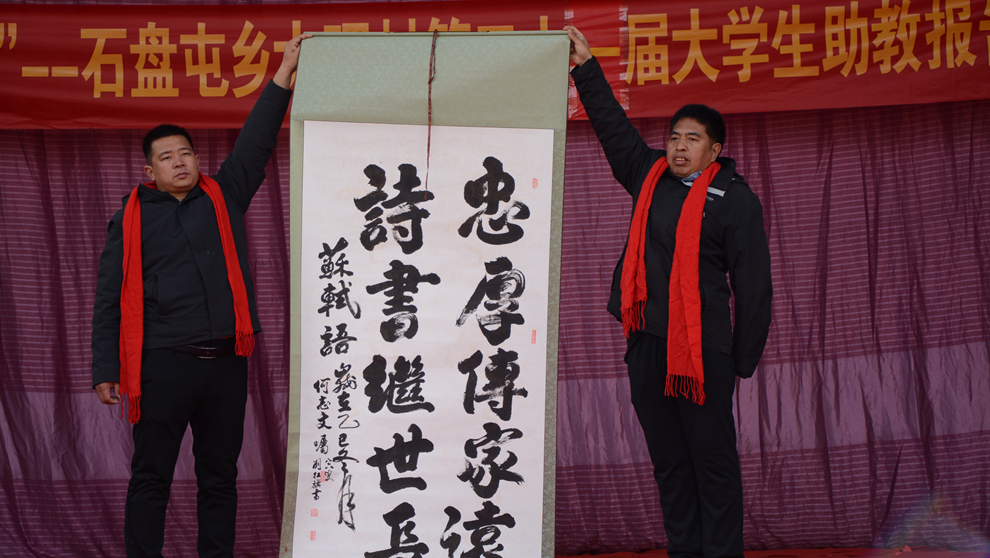 ”--石盘屯乡
届大学生助教报
忠厚傳家遠
詩書繼世長
蘇軾語
歲在乙巳冬月
何志文囑